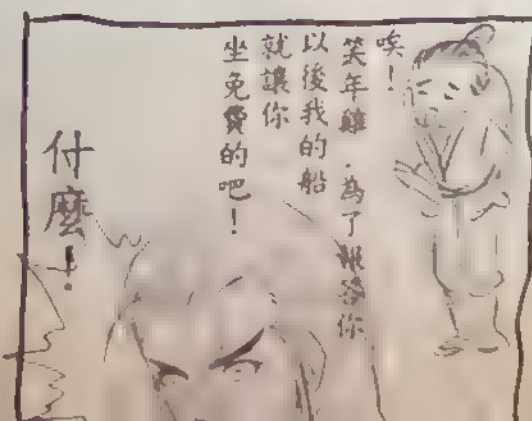 唉！
笑年雖．為了報答你
以後我的船
就讓你
坐免費的吧！
什麼！